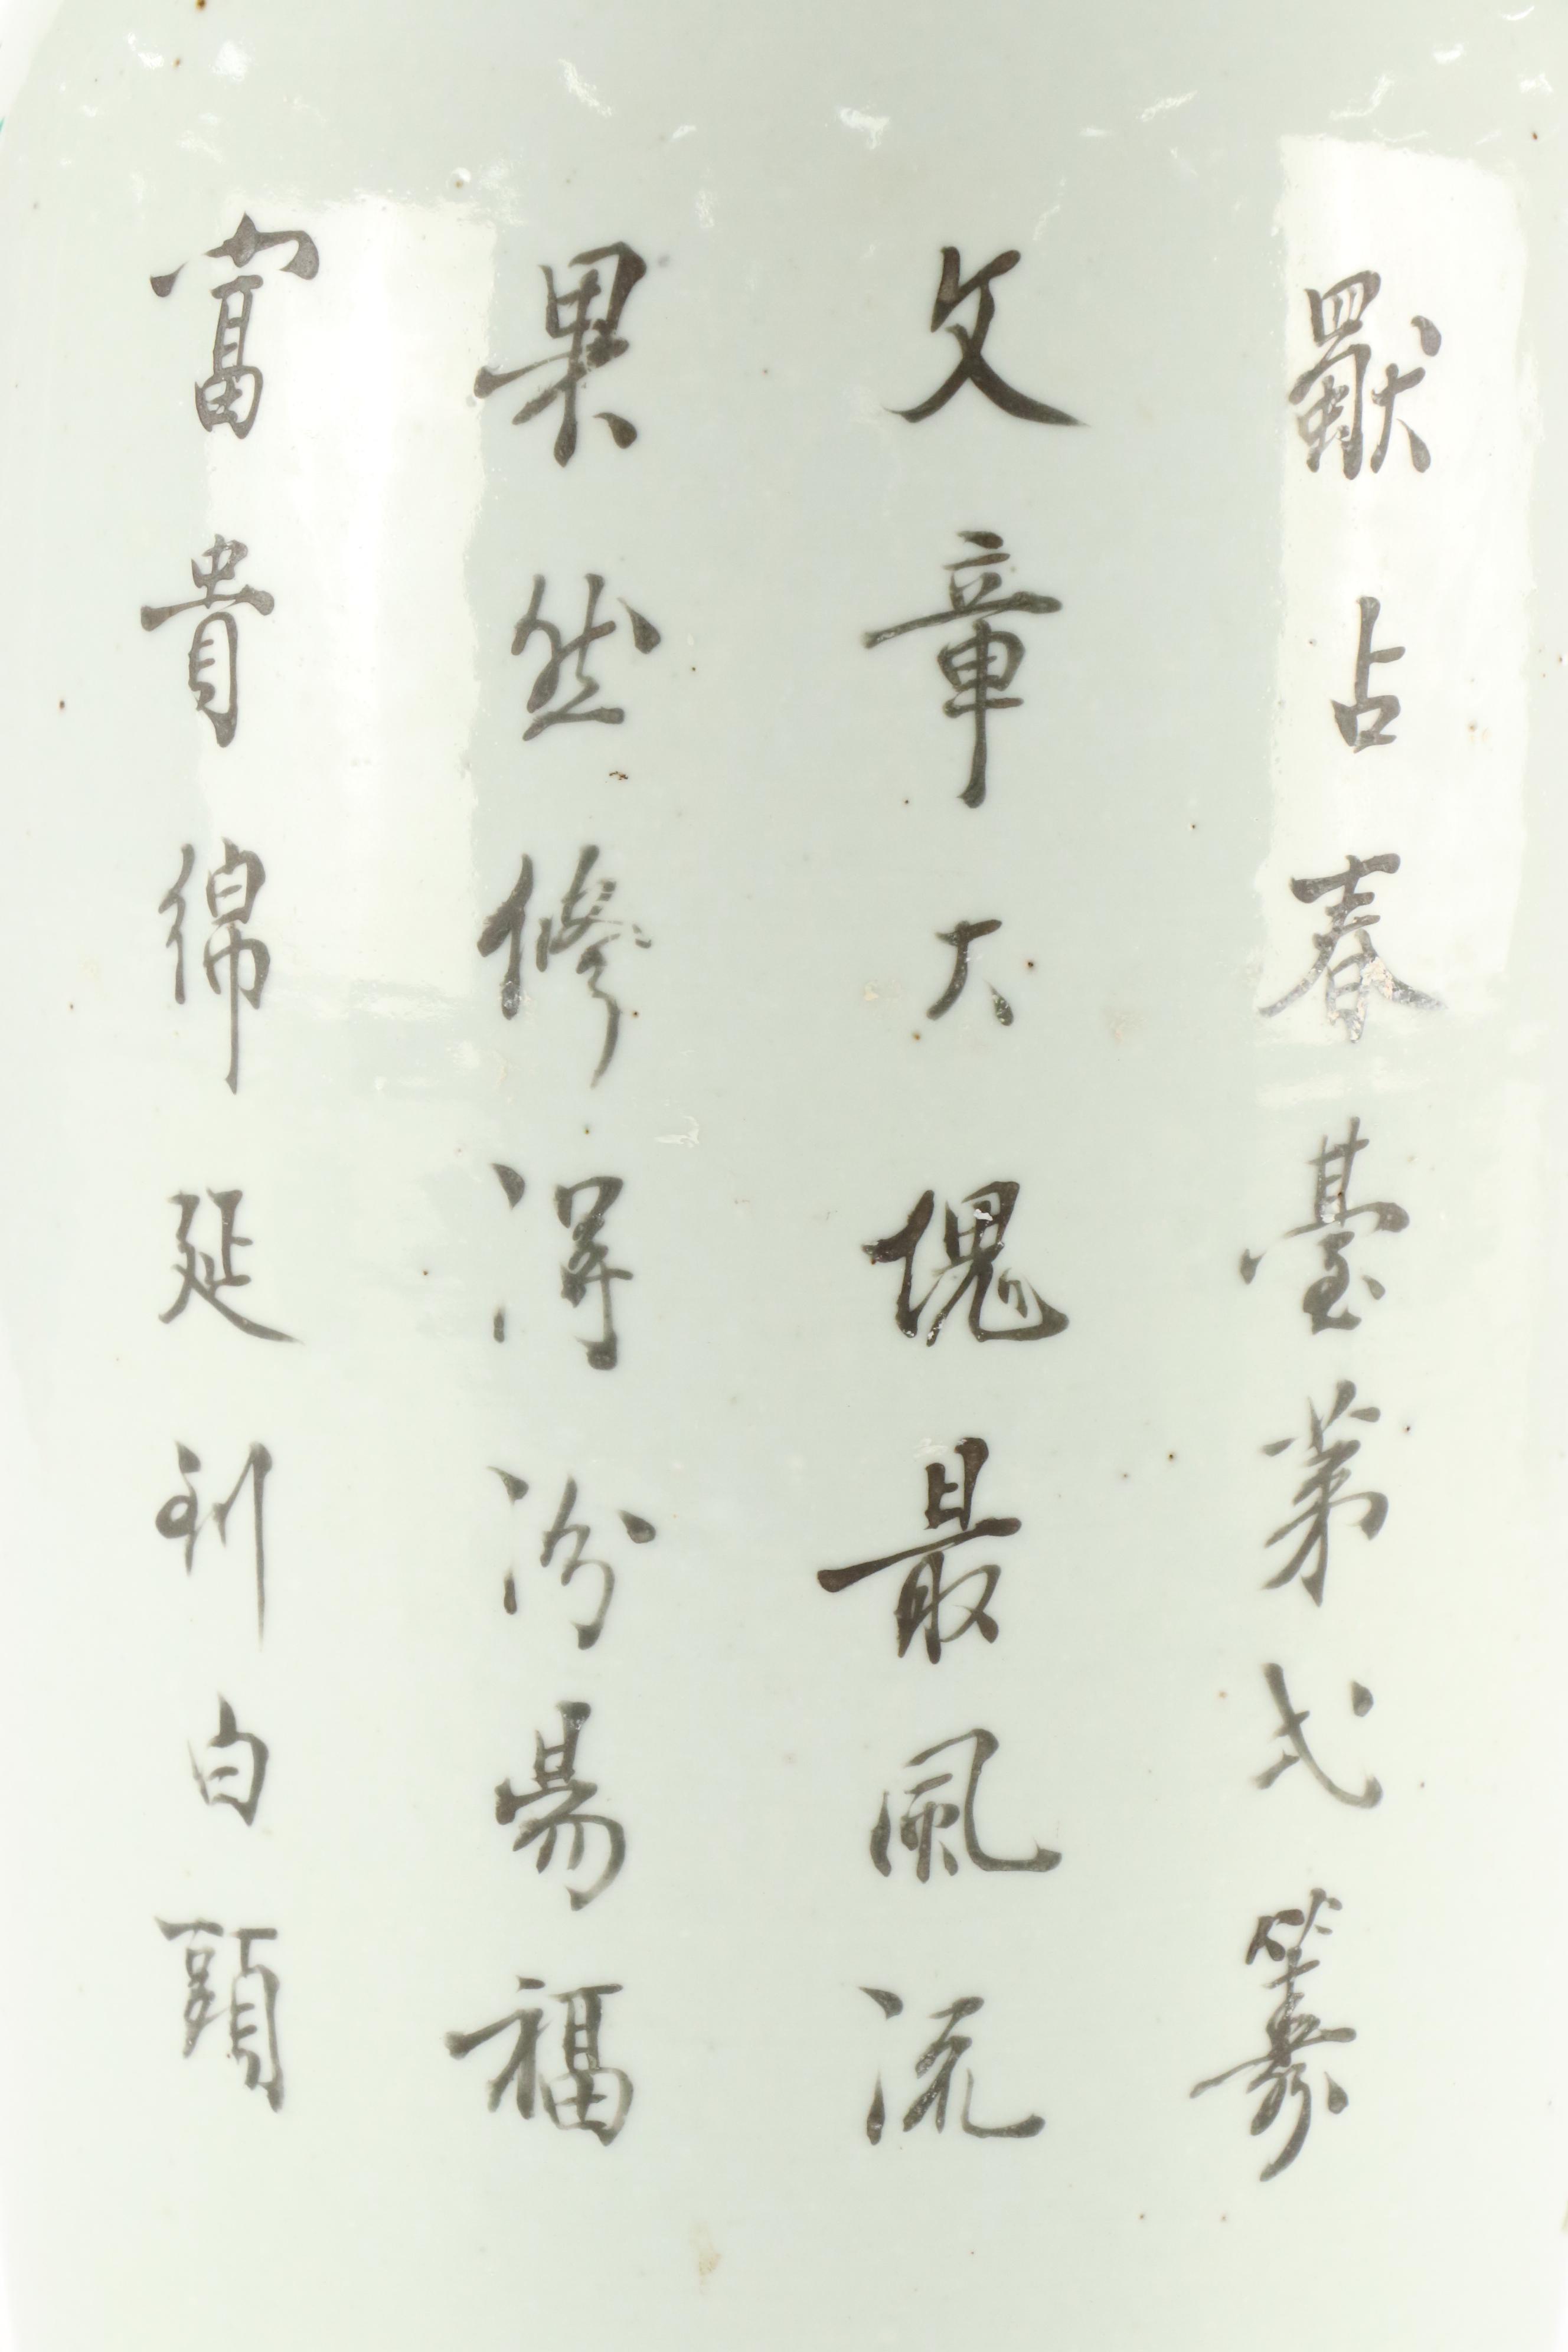 獨占春臺第弍籌
文章大塊最風流
果然修淂汾昜福
富貴綿延到白頭